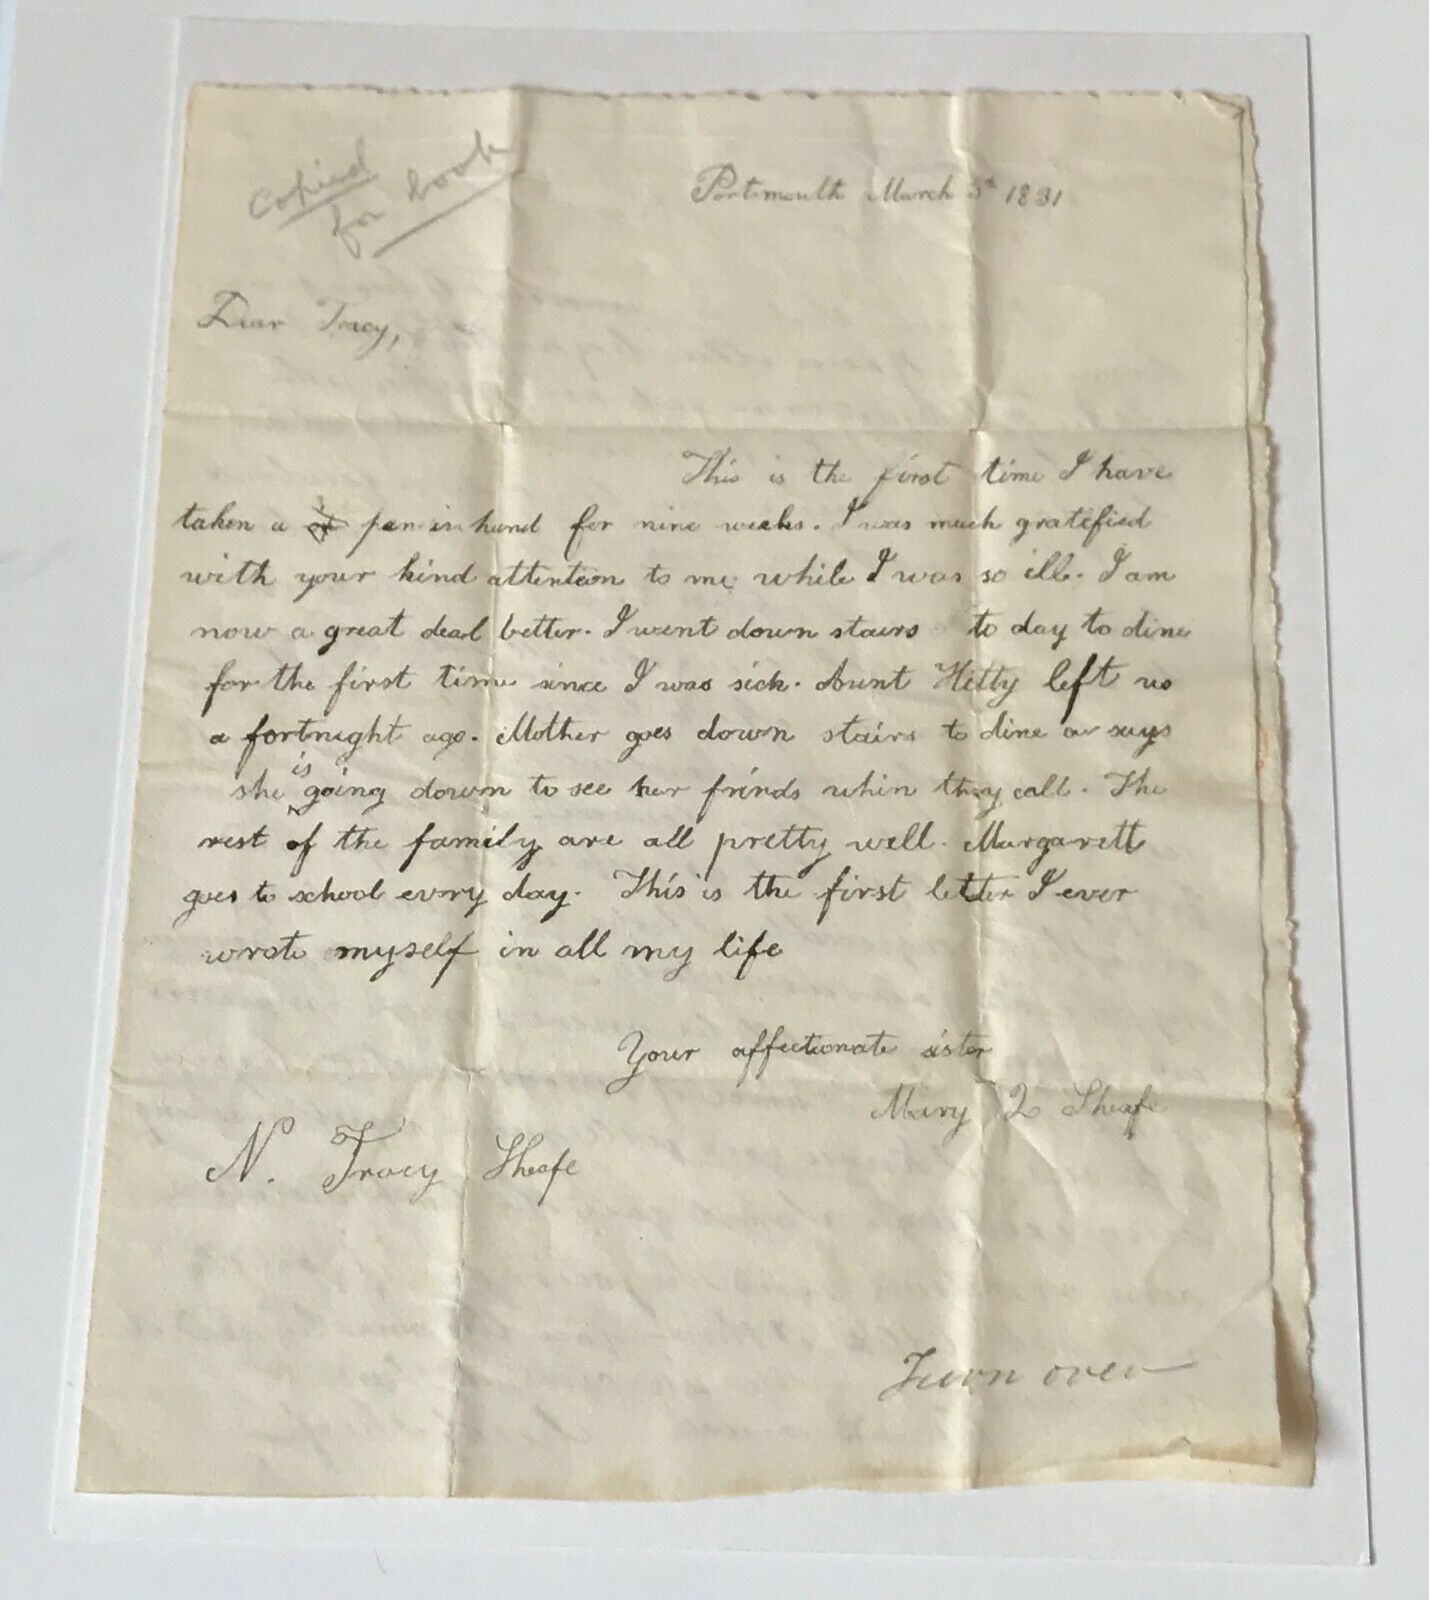 Copied
for book
Portsmouth March 5th 1831
Dear Tracy,
This is the first time I have
taken a pen in hand for nine weeks. I was much gratified
with your kind attention to me while I was so ill. I am
now a great deal better. I went down stairs to day to dine
for the first time since I was sick. Aunt Hitty left us
a fortnight ago. Mother goes down stairs to dine says
she is going down to see her frinds when they call. The
rest of the family are all pretty well. Margarett
goes to school every day. This is the first letter I ever
wrote myself in all my life
Your affectionate sister
Mary Q Sheafe
N. Tracy Sheafe
Turn over